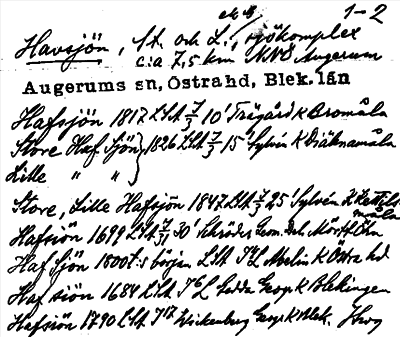 1-2
Havsjön, St. och L., sjökomplex
c:a 7,5 km NNO Augerum
Augerums sn, Östrahd, Blek. län
Hafsjön 1817 LSt 7/3 10' Trägård k Bromåla
Store Haf Sjön } 1826 LSt 7/3 15' Sylvén k Diäknamåla
Lille " "
Store, Lille Hafsjön 1847 LSt 7/3 25' Sylvén k Kettilsmåla
Hafsiön 1699 LSt 7/31 30' Schröder Geom. Del.
Haf Sjön 1800t:s början LSt Abelin k Östra hd
Haf siön 1684 LSt Gedda Geogr k Blekingen
Hafsiön 1790 LSt Wickenberg Geogr k Blek.